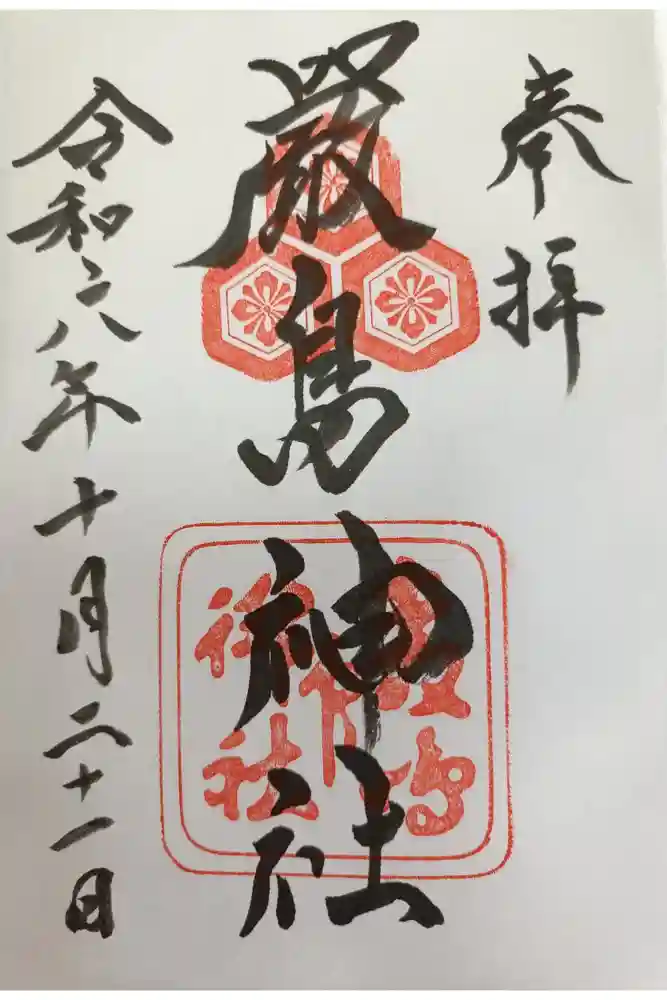 奉拝
厳島神社
令和六年十月二十一日